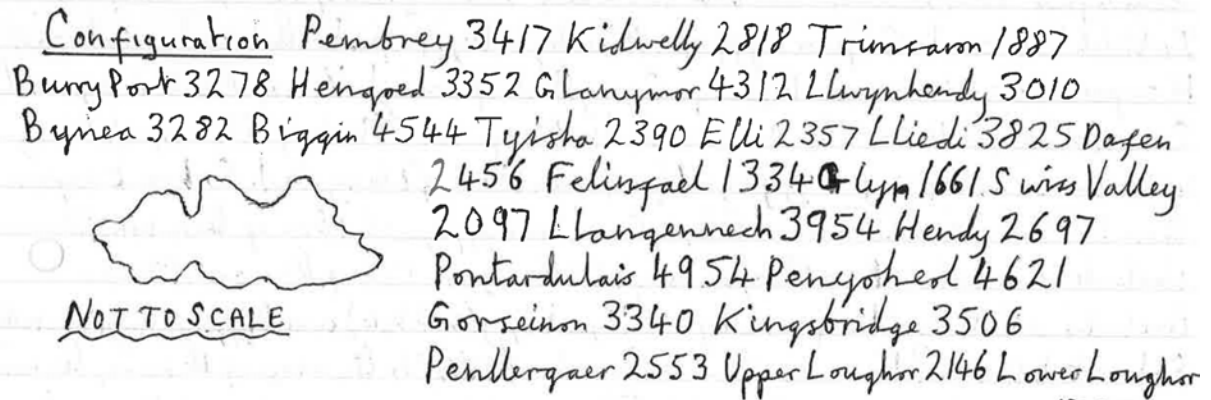 Configuration Pembrey 3417 Kidwelly 2818 Trimsaron 1887
Burry Port 3278 Hengoed 3352 Glanymor 4312 Llwynhendy 3010
Bynea 3282 Biggin 4544 Tyisha 2390 Elli 2357 Lliedi 3825 Dafen
2456 Felinfael 1334 Glyn 1661 Swiss Valley
2097 Llangennech 3954 Hendy 2697
Pontardulais 4954 Penyrheol 4621
NOT TO SCALE
Gorseinon 3340 Kingsbridge 3506
Penllergaer 2553 Upper Loughor 2146 Lower Loughor